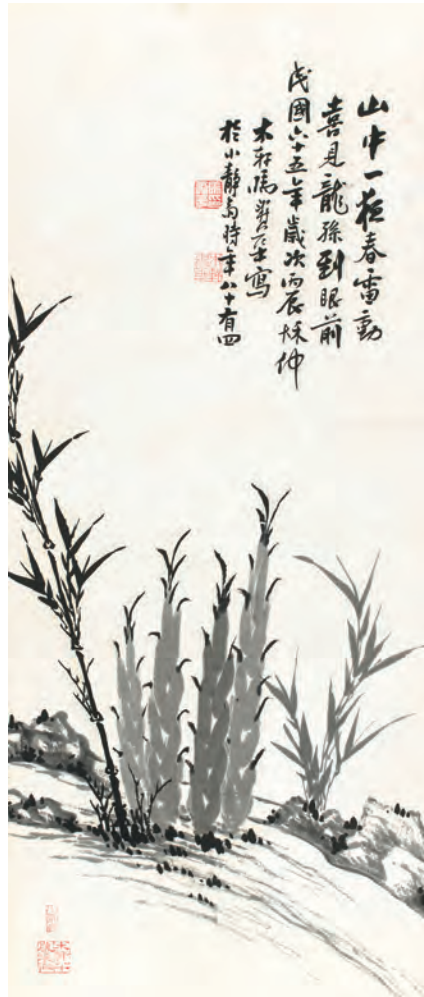 山中一夜春雷動
喜見龍孫到眼前
民國六十五年歲次丙辰秋仲
木軒馮士寫
於小靜時年八十有四